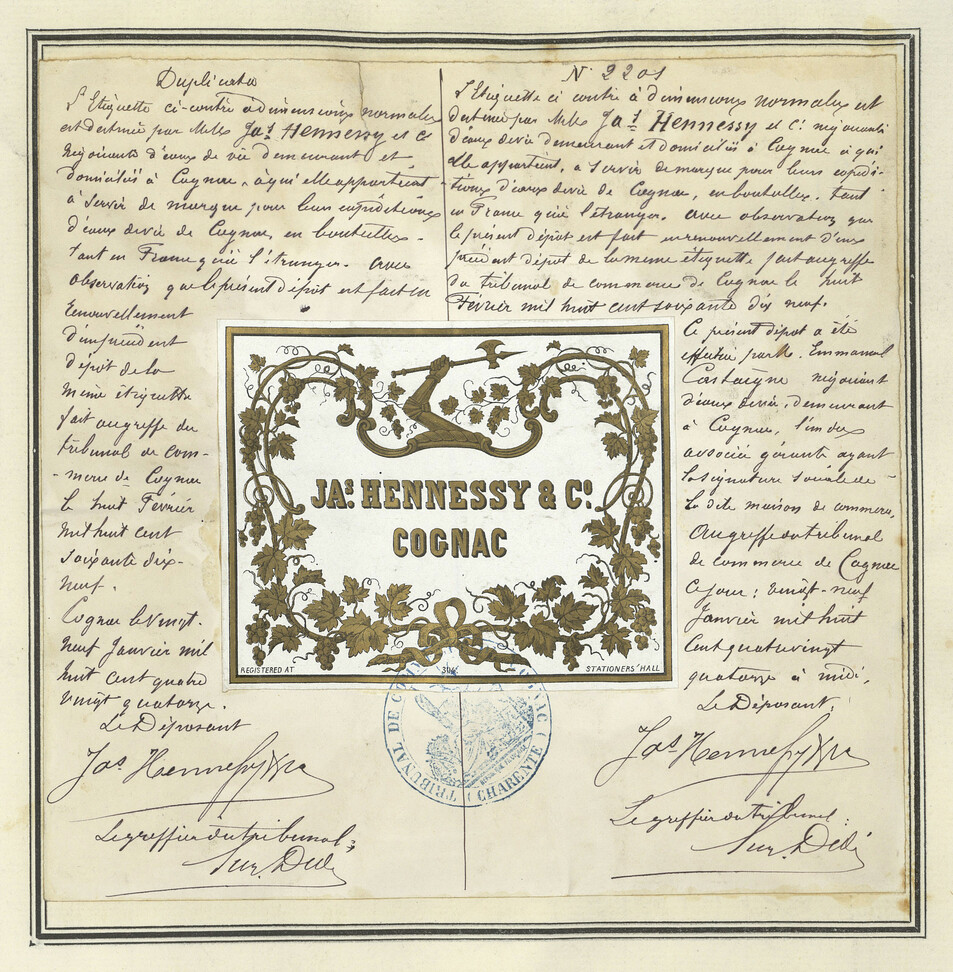 Duplicata
L'Etiquette ci-contre à dimensions normales
est destinée par M.M. Jas. Hennessy et Ce
négociants d'eaux de vie demeurant et
domiciliés à Cognac, à qui elle appartient
à servir de marque pour leurs expéditions
d'eaux de vie de Cognac, en bouteilles.
tant en France qu'à l'étranger. avec
observation que le présent dépôt est fait en
renouvellement
d'un précédent
dépôt de la
même étiquette
fait au greffe du
tribunal de Com-
-merce de Cognac
le huit Février
mil huit cent
soixante dix-
neuf.
Cognac le vingt-
neuf Janvier mil
huit cent quatre
vingt quatorze.
Le Déposant
Jas Hennessy & Co
Le greffier du tribunal
N° 2201
L'Etiquette ci contre à dimensions normales est
destinée par M.M. Jas. Hennessy et Ce. négociants
d'eaux de vie demeurant et domiciliés à Cognac à qui
elle appartient, à servir de marque pour leurs expédi-
-tions d'eaux de vie de Cognac, en bouteilles. tant
en France qu'à l'étranger. avec observation que
le présent dépôt est fait en renouvellement d'un
précédent dépôt de la même étiquette fait au greffe
du tribunal de commerce de Cognac le huit
Février mil huit cent soixante dix neuf.
Ce présent dépôt a été
effectué par M. Emmanuel
Castaigne négociant
d'eaux de vie, demeurant
à Cognac, l'un des
associés gérants ayant
la signature sociale de
la dite maison de commerce,
au greffe du tribunal
de commerce de Cognac
ce jour: vingt-neuf
Janvier mil huit
cent quatre vingt
quatorze à midi.
Le Déposant:
Jas Hennessy & Co
Le greffier du tribunal:
JAS. HENNESSY & Co.
COGNAC
REGISTERED AT
STATIONERS' HALL
TRIBUNAL DE COMMERCE COGNAC
(CHARENTE)